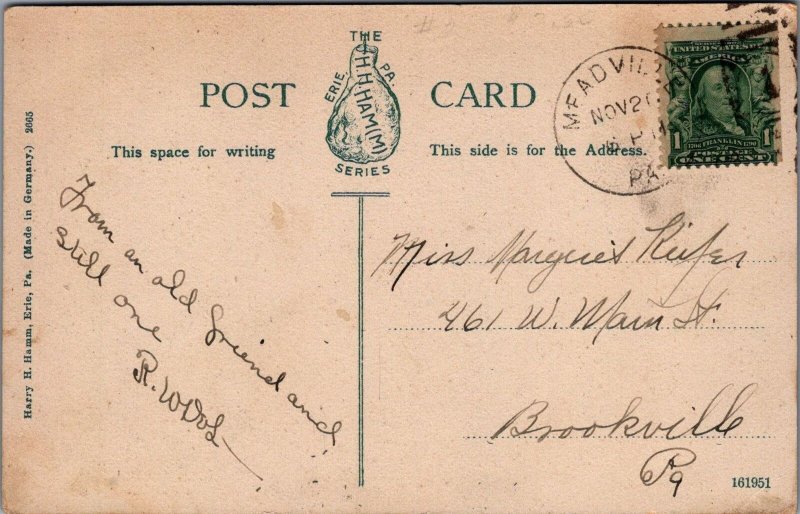 POST CARD
THE
H.H.HAMM
ERIE, PA.
SERIES
This space for writing
This side is for the Address.
MEADVILLE
NOV 2
PA.
UNITED STATES OF AMERICA
1 FRANKLIN 1
POSTAGE
ONE CENT
From an old friend and
still one
Miss Kiefer
461 W. Main St.
Brookville
Pa
Harry H. Hamm, Erie, Pa. (Made in Germany.) 2665
161951